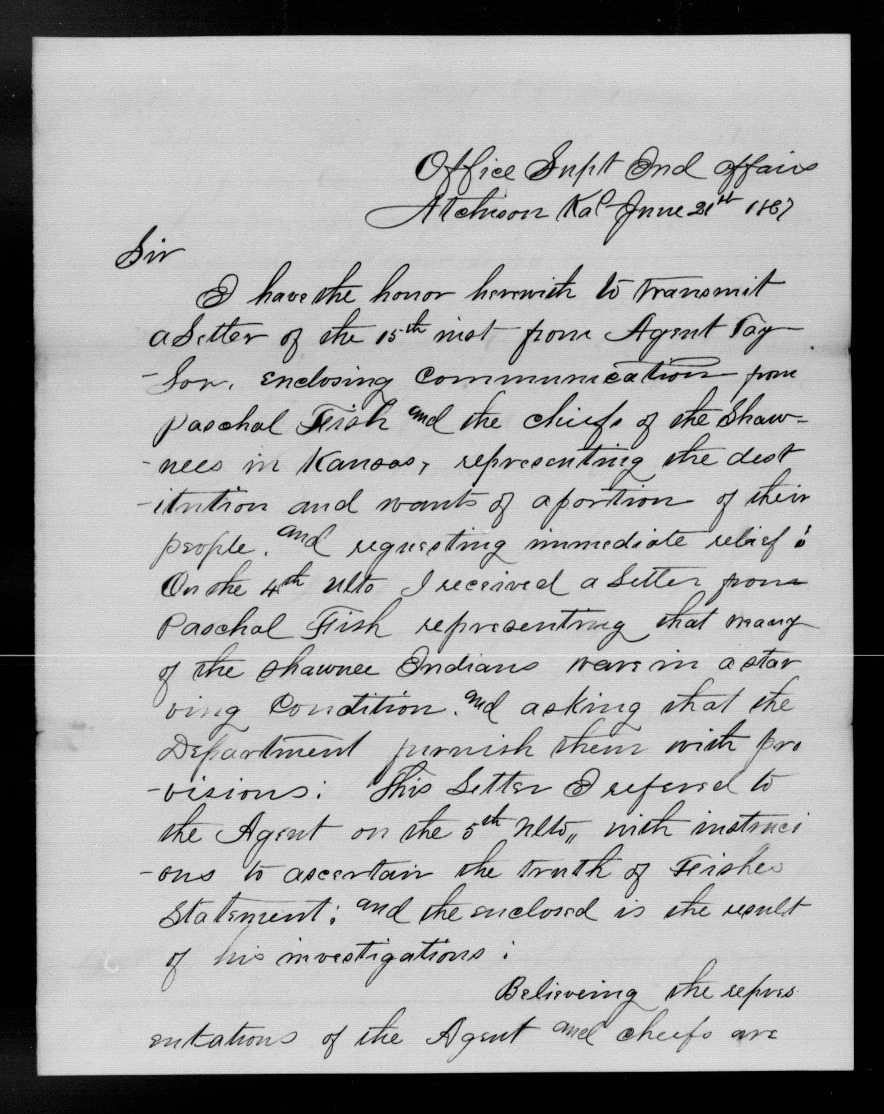 Office Supt Ind Affairs
Atchison Kas June 21st 1867
Sir
I have the honor herewith to transmit
a Letter of the 15th inst from Agent Tay-
-lor, enclosing Communication from
Paschal Fish and the chiefs of the Shaw-
-nees in Kansas, representing the dest
-itution and wants of a portion of their
people. and requesting immediate relief:
On the 4th ulto I received a Letter from
Paschal Fish representing that many
of the Shawnee Indians were in a star
ving Condition. and asking that the
Department furnish them with pro
-visions: This Letter I referred to
the Agent on the 5th ulto,, with instructi
-ons to ascertain the truth of Fishes
Statement; and the enclosed is the result
of his investigations:
Believing the repres
entations of the Agent and cheifs are